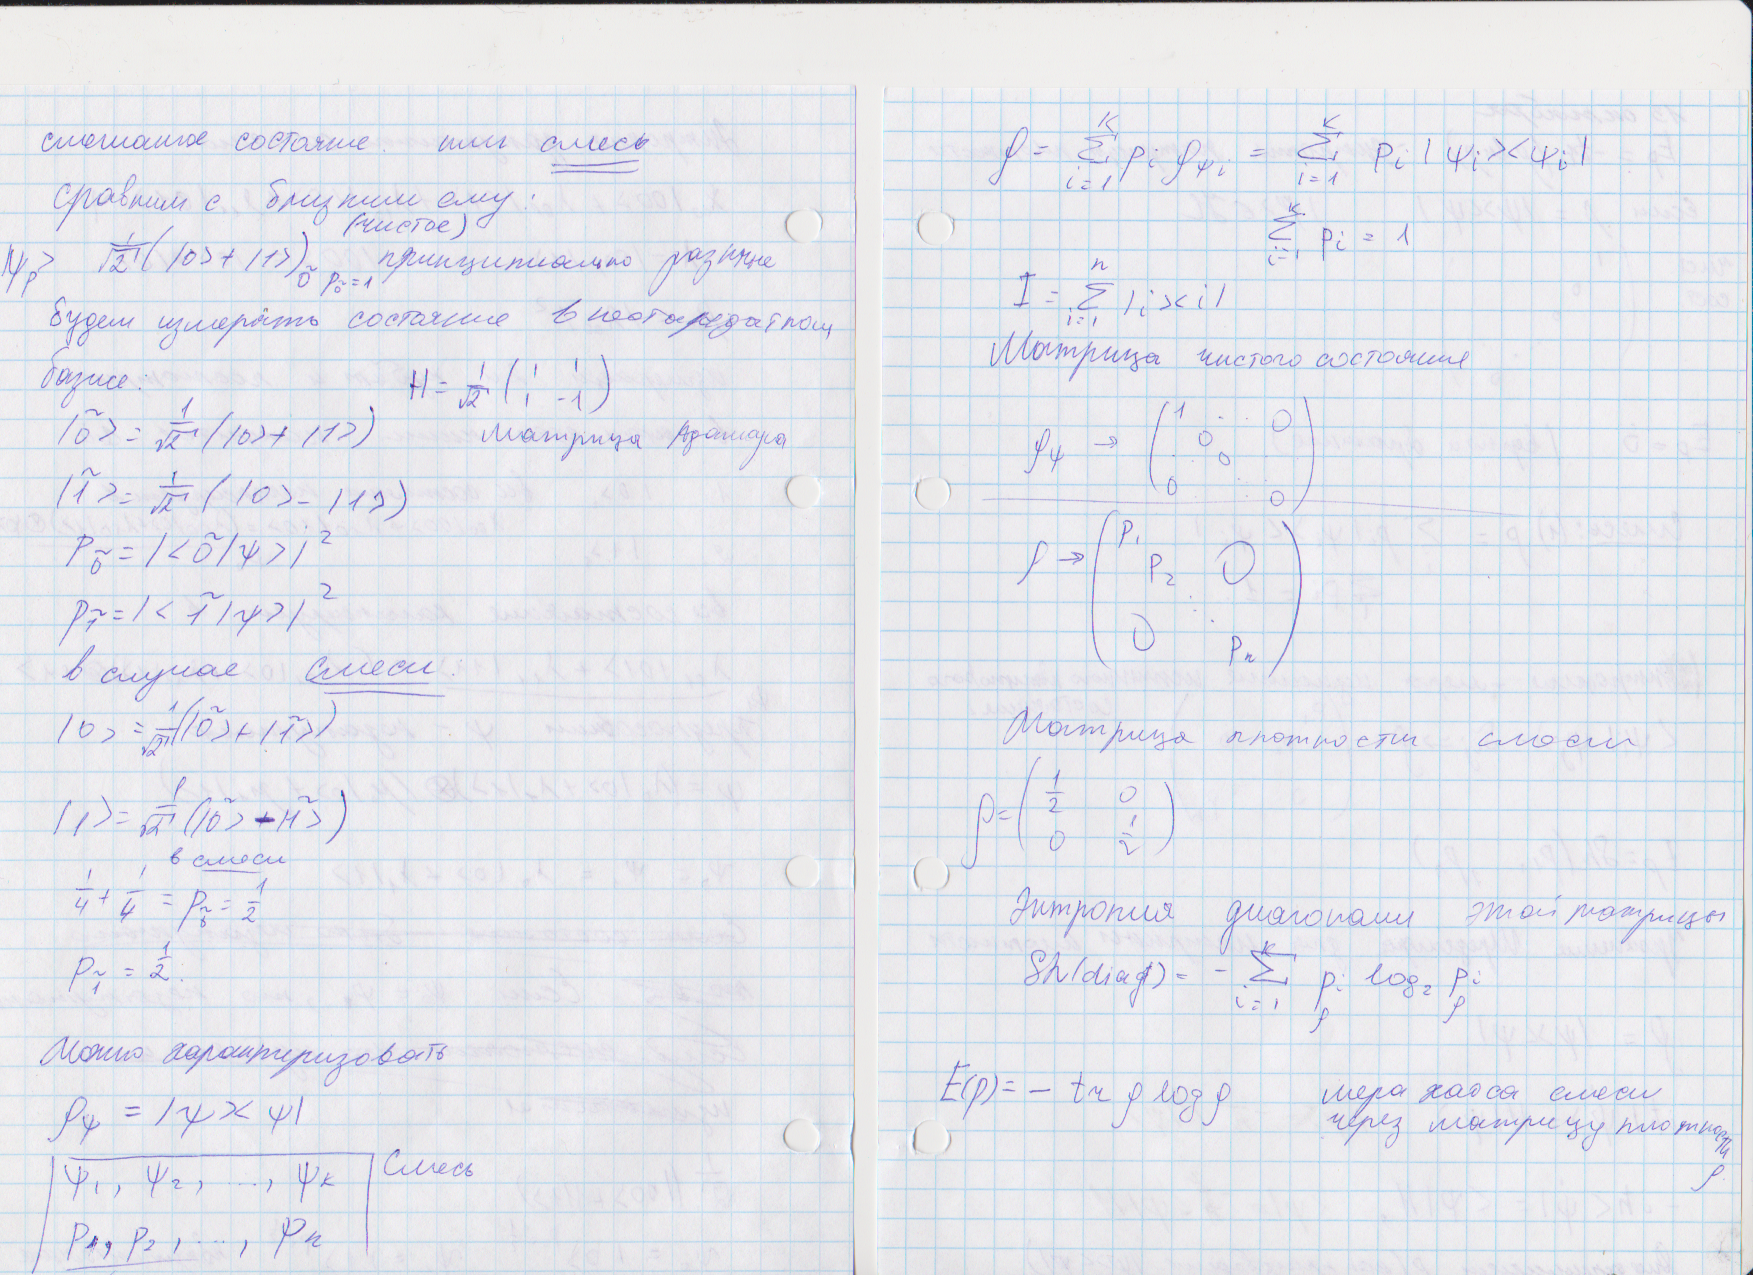 смешанное состояние или смесь
сравним с близким ему:
(чистое)
|ψ_р> 1/√2 (|0> + |1>)_õ p_õ=1 принципиально различие
будем измерять состояние в
базисе: H = 1/√2 (1 1; 1 -1)
|õ> = 1/√2 (|0> + |1>) матрица Адамара
|1̃> = 1/√2 (|0> - |1>)
p_õ = |<õ|ψ>|²
p_1̃ = |<1̃|ψ>|²
в случае смеси
|0> = 1/√2 (|õ> + |1̃>)
|1> = 1/√2 (|õ> - |1̃>)
в смеси
1/4 + 1/4 = p_õ = 1/2
p_1̃ = 1/2.
Можно характеризовать
ρ_ψ = |ψ><ψ|
ψ₁, ψ₂, ..., ψ_k Смесь
p₁, p₂, ..., p_k
ρ = Σ_{i=1}^{k} p_i ρ_{ψ_i} = Σ_{i=1}^{k} p_i |ψ_i><ψ_i|
Σ_{i=1}^{k} p_i = 1
I = Σ_{i=1}^{n} |i><i|
Матрица чистого состояния
ρ_ψ → (1 . . 0
0
. 0 .
0 . 0)
ρ → (p₁
p₂ 0
. .
0 p_n)
Матрица плотности смеси
ρ = (1/2 0
0 1/2)
Энтропия диагонали этой матрицы
Sh(diag) = - Σ_{i=1}^{k} p_i log₂ p_i
ρ ρ
E(ρ) = - tr ρ log ρ мера хаоса смеси
через матрицу плотности
ρ